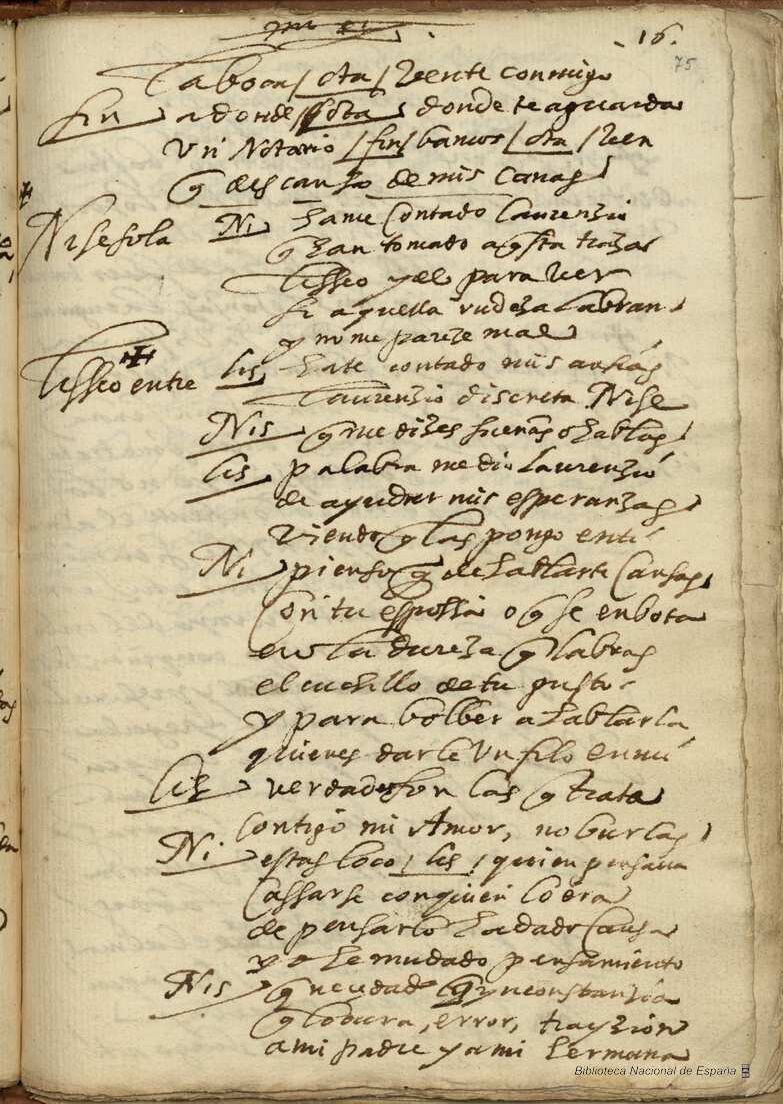 16.
75
la boca / ota / vente conmigo
fin a donde / ota / donde te aguarda
Un Notario / fin / bamos / ota / ven
q descanso de mis canas
Nise sola Ni hame contado laurenzio
q han tomado aqsta traza
lisseo y el para ver
si aquella rudeza labran
y no me pareze mal
lisseo entre lis hate contado mis ansias
laurenzio discreta Nise
Nis q me dizes sueñas o hablas
lis palabra me dio laurenzio
de ayudar mis esperanzas
viendo q las pongo en ti
Ni pienso q de hablarte cansas
con tu espossa o q se enbota
en la dureza q labras
el cuchillo de tu gusto
y para bolber a hablarla
quieres darle Un filo en mi
lis verdades son las q trata
contigo mi Amor, no burlas
Ni. estas loco / lis / quien pensaua
cassarse con quien lo era
de pensarlo ha dado causa
yo he mudado pensamiento
Nis q necedad q ynconstanzia
q locura, error, trayzion
a mi padre y a mi hermana
Biblioteca Nacional de España